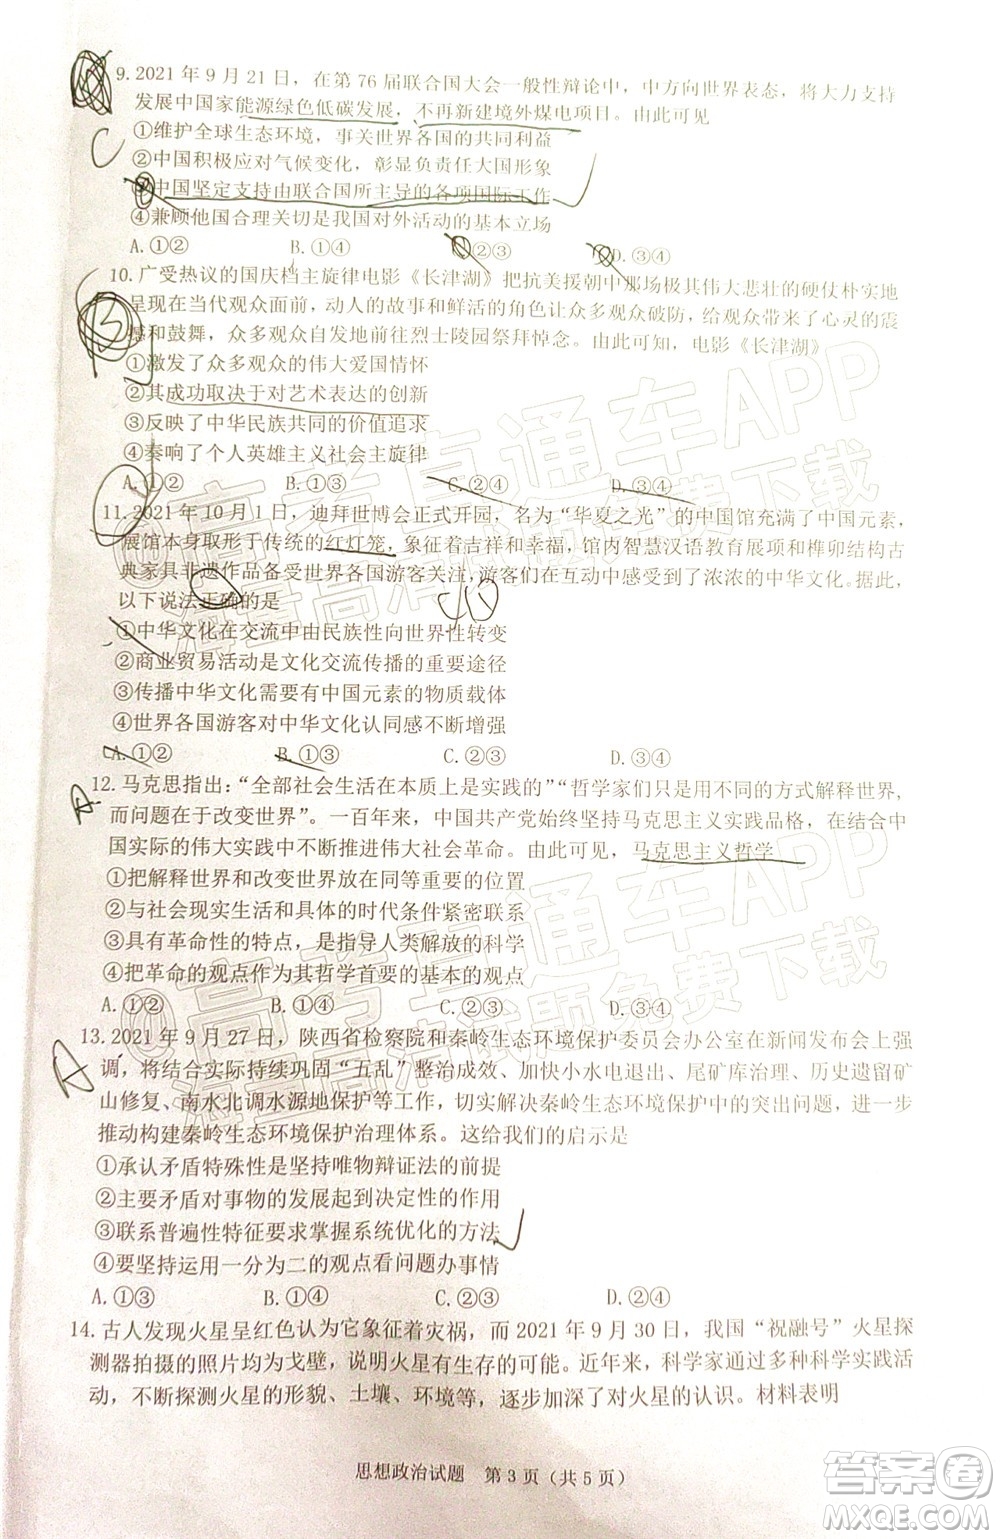 9. 2021 年 9 月 21 日，在第 76 届联合国大会一般性辩论中，中方向世界表态，将大力支持
发展中国家能源绿色低碳发展，不再新建境外煤电项目。由此可见
①维护全球生态环境，事关世界各国的共同利益
C
②中国积极应对气候变化，彰显负责任大国形象
③中国坚定支持由联合国所主导的各项国际工作
④兼顾他国合理关切是我国对外活动的基本立场
A. ①② B. ①④ C. ②③ D. ③④
10. 广受热议的国庆档主旋律电影《长津湖》把抗美援朝中那场极其伟大悲壮的硬仗朴实地
呈现在当代观众面前，动人的故事和鲜活的角色让众多观众破防，给观众带来了心灵的震
撼和鼓舞，众多观众自发地前往烈士陵园祭拜悼念。由此可知，电影《长津湖》
①激发了众多观众的伟大爱国情怀
②其成功取决于对艺术表达的创新
③反映了中华民族共同的价值追求
④奏响了个人英雄主义社会主旋律
A. ①② B. ①③ C. ②④ D. ③④
11. 2021 年 10 月 1 日，迪拜世博会正式开园，名为“华夏之光”的中国馆充满了中国元素，
展馆本身取形于传统的红灯笼，象征着吉祥和幸福，馆内智慧汉语教育展项和榫卯结构古
典家具非遗作品备受世界各国游客关注，游客们在互动中感受到了浓浓的中华文化。据此，
以下说法正确的是
①中华文化在交流中由民族性向世界性转变
②商业贸易活动是文化交流传播的重要途径
③传播中华文化需要有中国元素的物质载体
④世界各国游客对中华文化认同感不断增强
A. ①② B. ①③ C. ②③ D. ③④
12. 马克思指出：“全部社会生活在本质上是实践的”“哲学家们只是用不同的方式解释世界，
而问题在于改变世界”。一百年来，中国共产党始终坚持马克思主义实践品格，在结合中
国实际的伟大实践中不断推进伟大社会革命。由此可见，马克思主义哲学
①把解释世界和改变世界放在同等重要的位置
②与社会现实生活和具体的时代条件紧密联系
③具有革命性的特点，是指导人类解放的科学
④把革命的观点作为其哲学首要的基本的观点
A. ①② B. ①④ C. ②③ D. ③④
13. 2021 年 9 月 27 日，陕西省检察院和秦岭生态环境保护委员会办公室在新闻发布会上强
调，将结合实际持续巩固“五乱”整治成效、加快小水电退出、尾矿库治理、历史遗留矿
山修复、南水北调水源地保护等工作，切实解决秦岭生态环境保护中的突出问题，进一步
推动构建秦岭生态环境保护治理体系。这给我们的启示是
①承认矛盾特殊性是坚持唯物辩证法的前提
②主要矛盾对事物的发展起到决定性的作用
③联系普遍性特征要求掌握系统优化的方法
④要坚持运用一分为二的观点看问题办事情
A. ①③ B. ①④ C. ②③ D. ②④
14. 古人发现火星呈红色认为它象征着灾祸，而 2021 年 9 月 30 日，我国“祝融号”火星探
测器拍摄的照片均为戈壁，说明火星有生存的可能。近年来，科学家通过多种科学实践活
动，不断探测火星的形貌、土壤、环境等，逐步加深了对火星的认识。材料表明
思想政治试题 第 3 页（共 5 页）
@高考直通车APP
海量高清试题免费下载
@高考直通车APP
海量高清试题免费下载
答案圈
MXQE.COM